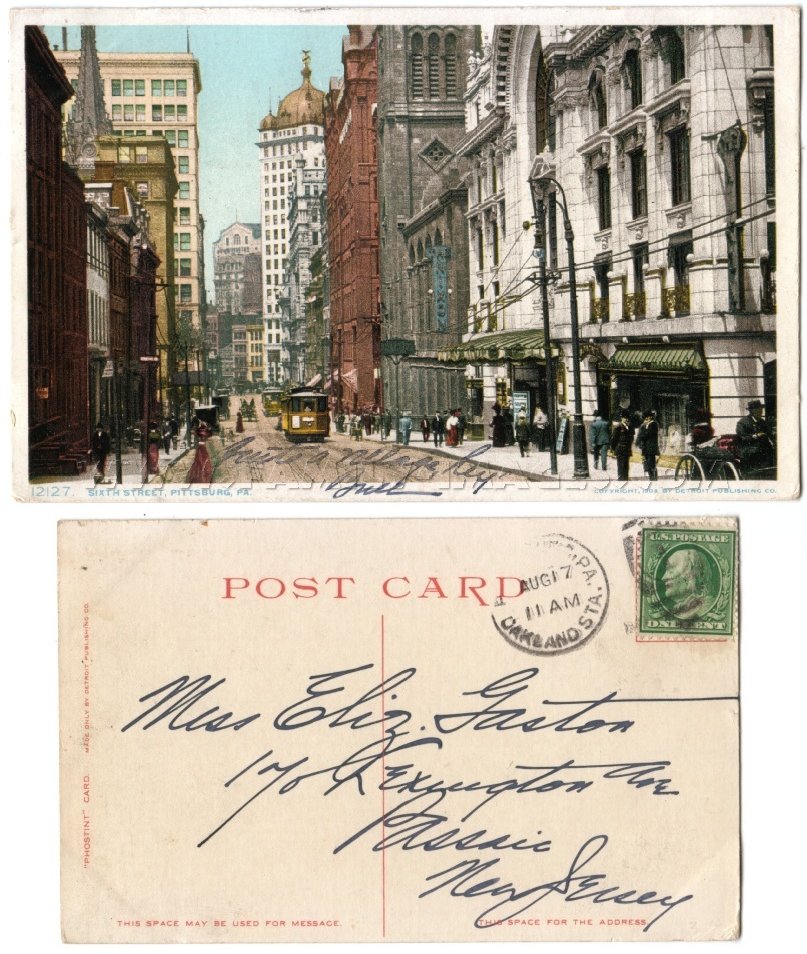 NIXON
12127. SIXTH STREET, PITTSBURG, PA.
COPYRIGHT, 1908, BY DETROIT PUBLISHING CO.
POST CARD
PA.
AUG 17
11 AM
OAKLAND STA.
U.S. POSTAGE
ONE CENT
MADE ONLY BY DETROIT PUBLISHING CO.
"PHOSTINT" CARD.
Miss Eliz. Gaston
170 Lexington Ave
Passaic
New Jersey
THIS SPACE MAY BE USED FOR MESSAGE.
THIS SPACE FOR THE ADDRESS.